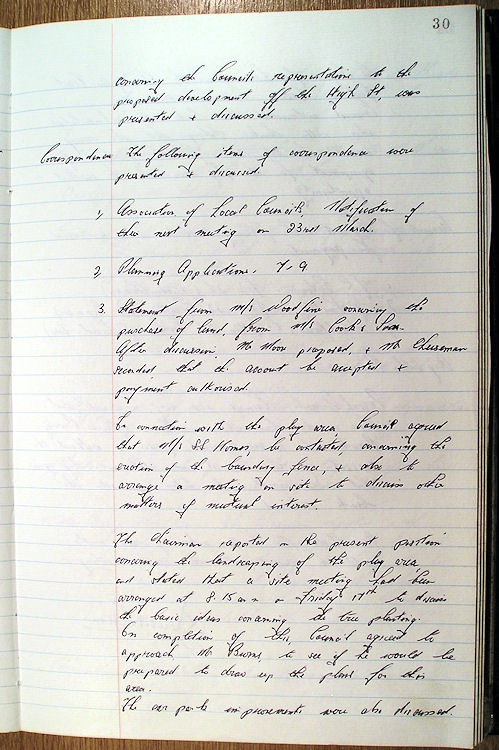 30
concerning the Councils representations to the
proposed development off the High St, was
presented & discussed.
Correspondence The following items of correspondence were
presented & discussed.
1, Association of Local Councils, Notification of
their next meeting on 23rd March.
2, Planning Applications. 7, 9
3. Statement from M/s Woodfine concerning the
purchase of land, from M/s Cook & Sons.
After discussion, Mr Moore proposed, & Mr
seconded that the account be accepted &
payment authorised.
In connection with the play area, Council agreed
that M/s Homes, be contacted, concerning the
erection of the boundary fence, & also to
arrange a meeting on site to discuss other
matters of mutual interest.
The Chairman reported on the present position
concerning the landscaping of the play area
and stated that a site meeting had been
arranged at 8.15 am on Friday 17th to discuss
the basic ideas concerning the tree planting.
On completion of this, Council agreed to
approach Mr Burns, to see if he would be
prepared to draw up the plans for this
area.
The car park improvements were also discussed.